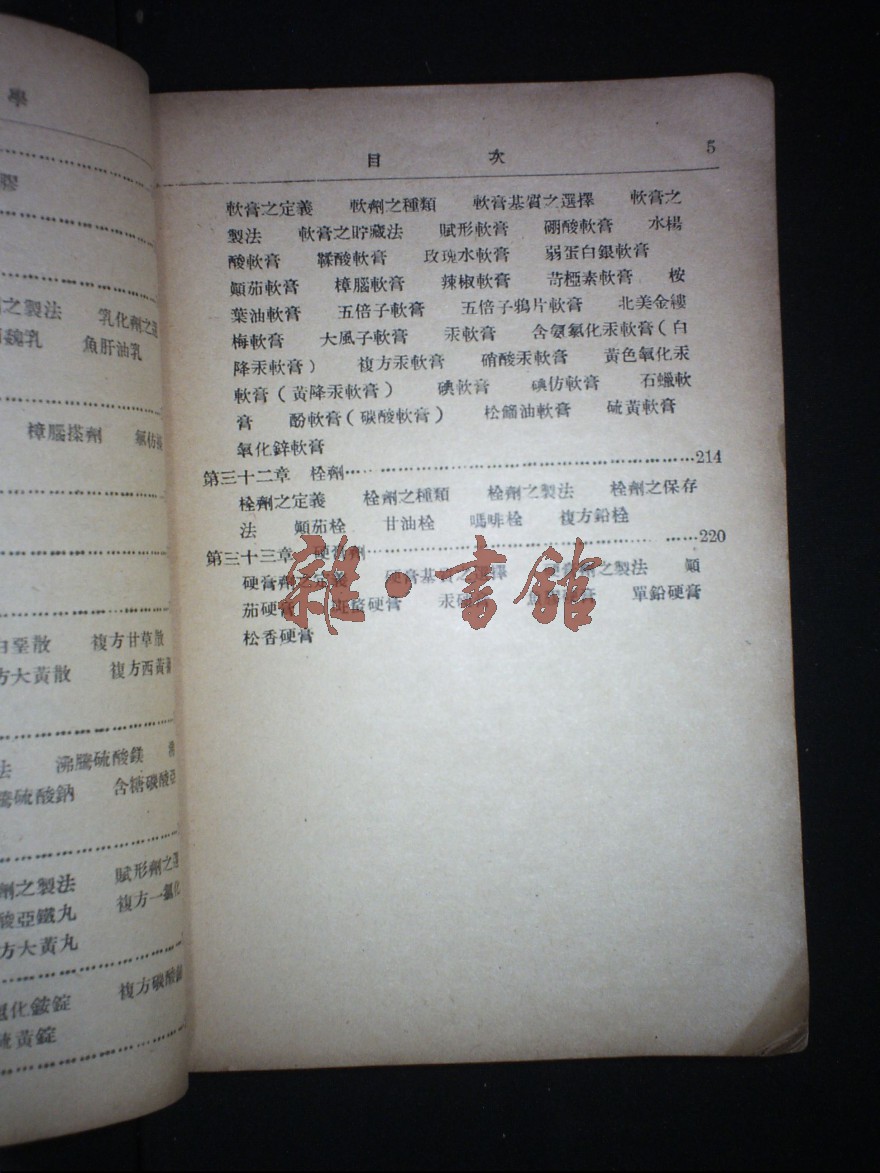 學
膠
之製法 乳化劑之選
魏乳 魚肝油乳
樟腦搽劑
白堊散 複方甘草散
方大黃散 複方西黃
法 沸騰硫酸鎂
騰硫酸鈉 含糖磷酸亞
劑之製法 賦形劑之選
酸亞鐵丸 複方一氯化
方大黃丸
氯化銨錠 複方磺酸
硫黃錠
目 次 5
軟膏之定義 軟劑之種類 軟膏基質之選擇 軟膏之
製法 軟膏之貯藏法 賦形軟膏 硼酸軟膏 水楊
酸軟膏 鞣酸軟膏 玫瑰水軟膏 弱蛋白銀軟膏
顛茄軟膏 樟腦軟膏 辣椒軟膏 苛椏素軟膏 桉
葉油軟膏 五倍子軟膏 五倍子鴉片軟膏 北美金縷
梅軟膏 大風子軟膏 汞軟膏 含氨氯化汞軟膏(白
降汞軟膏) 複方汞軟膏 硝酸汞軟膏 黃色氧化汞
軟膏(黃降汞軟膏) 碘軟膏 碘仿軟膏 石蠟軟
膏 酚軟膏(碳酸軟膏) 松餾油軟膏 硫黃軟膏
氧化鋅軟膏
第三十二章 栓劑……………………………214
栓劑之定義 栓劑之種類 栓劑之製法 栓劑之保存
法 顛茄栓 甘油栓 嗎啡栓 複方鉛栓
第三十三章 硬膏劑……………………………220
硬膏劑之定義 硬膏基質之選擇 硬膏劑之製法 顛
茄硬膏 斑蝥硬膏 汞硬膏 硬膏 單鉛硬膏
松香硬膏
雜·書館